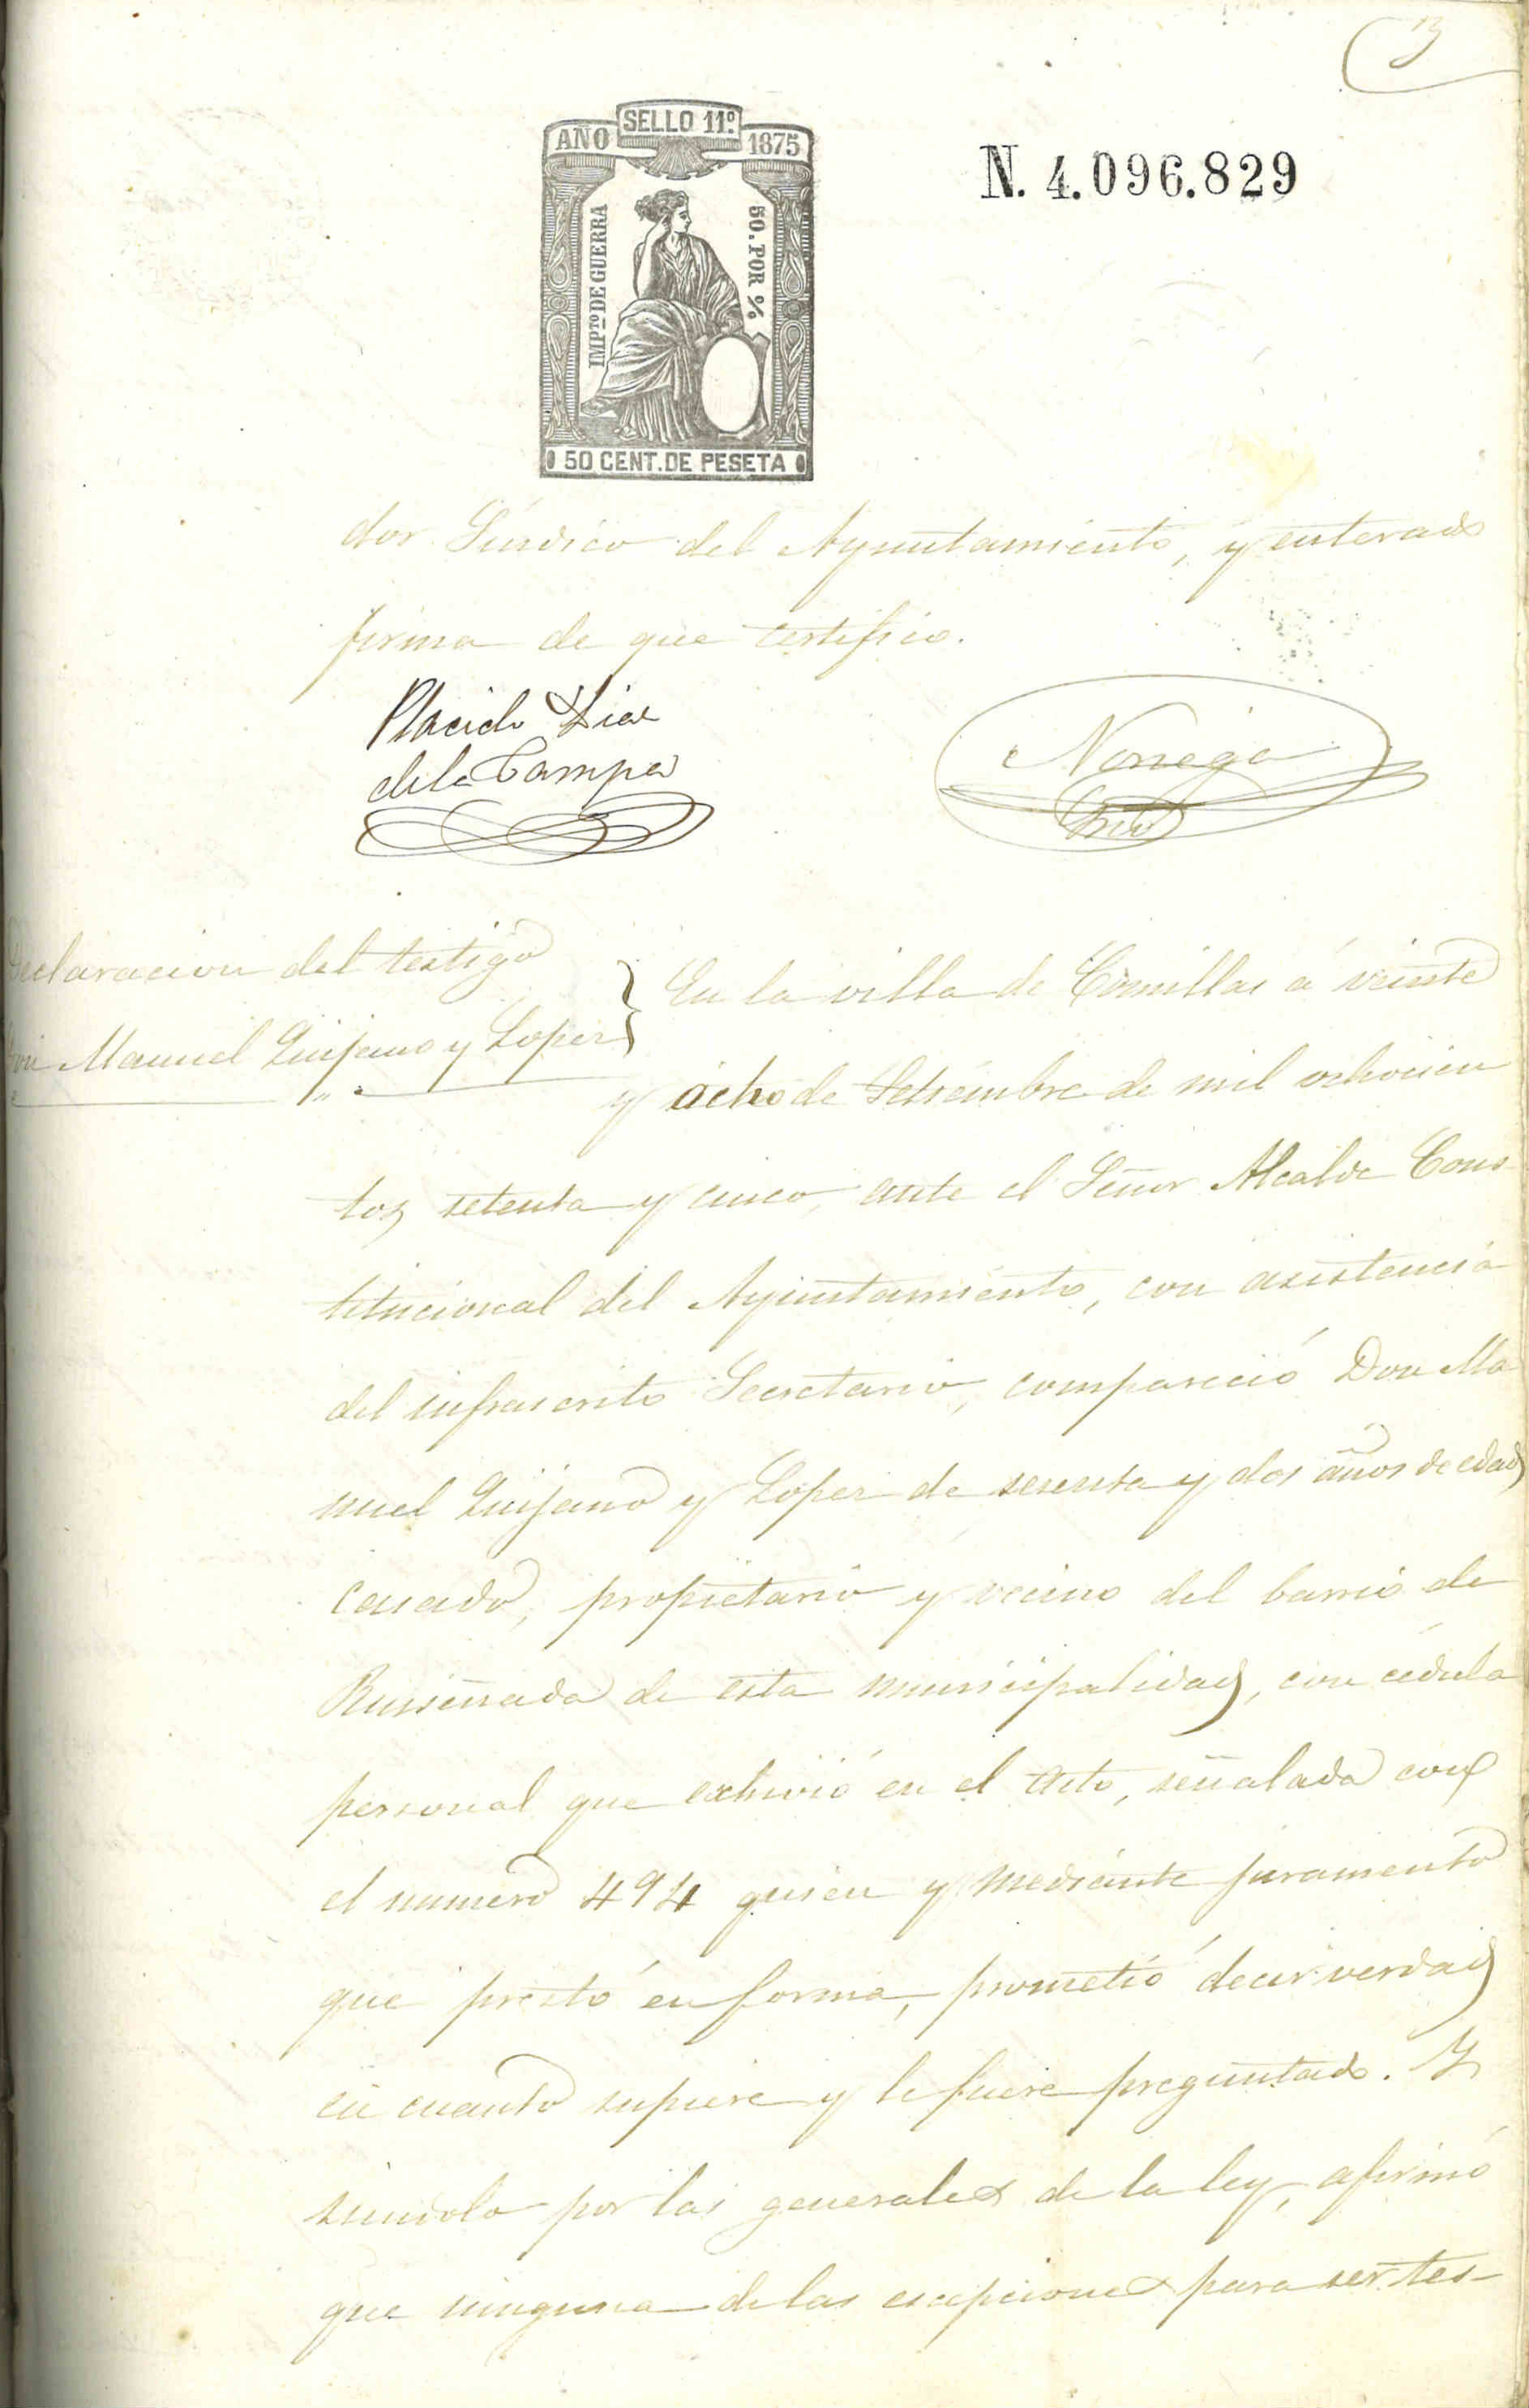 13
AÑO SELLO 11º 1875
IMPTO DE GUERRA
50. POR %
50 CENT. DE PESETA
N. 4.096.829
dor Síndico del Ayuntamiento, y enterado
firma de que certifico.
Placido Diaz
de la Campa
Noriega
Srio
Declaracion del testigo
Don Manuel Quijano y Lopez
En la villa de Comillas á veinte
y ocho de Setiembre de mil ochocien
tos setenta y cinco, ante el Señor Alcalde Cons-
titucional del Ayuntamiento, con asistencia
del infrascrito Secretario, compareció Don Ma
nuel Quijano y Lopez de sesenta y dos años de edad,
casado, propietario y vecino del barrio de
Ruiseñada de esta municipalidad, con cédula
personal que exhivió en el acto, señalada con
el numero 494 quien y mediante juramento
que prestó en forma, prometió decir verdad
en cuanto supiere y le fuere preguntado. Y
siendolo por las generales de la ley, afirmó
que ninguna de las escepciones para ser tes-